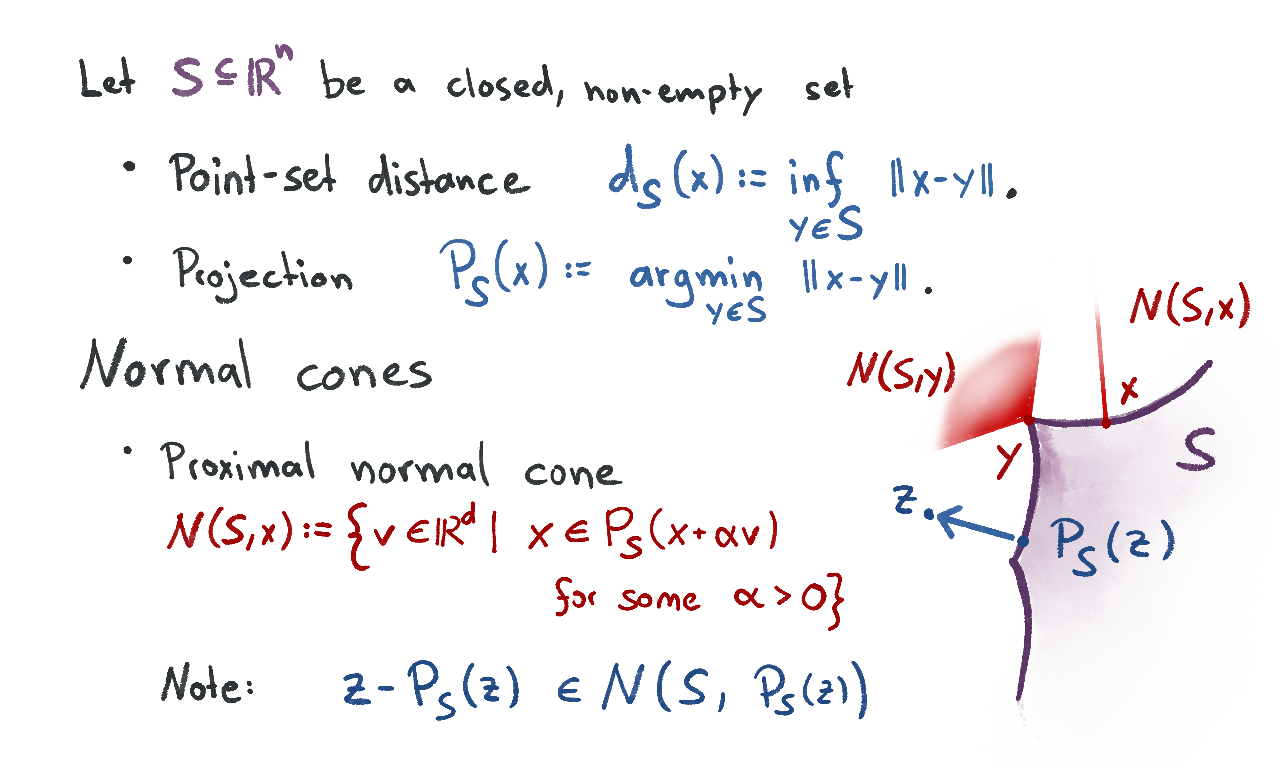 Let S ⊆ ℝⁿ be a closed, non-empty set
• Point-set distance d_S(x) := inf_{y∈S} ||x-y||.
• Projection P_S(x) := argmin_{y∈S} ||x-y||.
Normal cones
• Proximal normal cone
N(S,x) := {v ∈ ℝᵈ | x ∈ P_S(x+αv)
for some α > 0}
Note: z - P_S(z) ∈ N(S, P_S(z))
N(S,x)
N(S,y)
x
y
S
z
P_S(z)